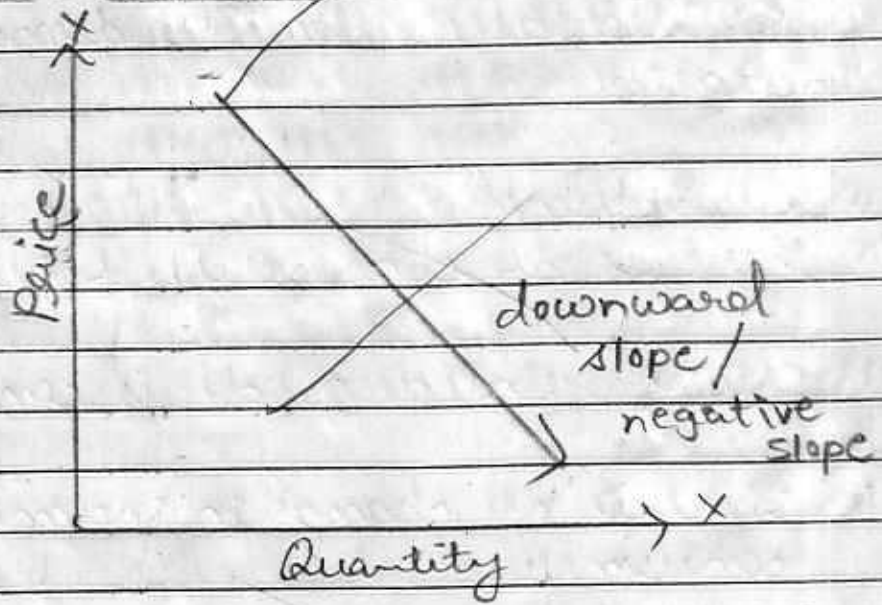 X
Price
downward
slope/
negative
slope
X
Quantity